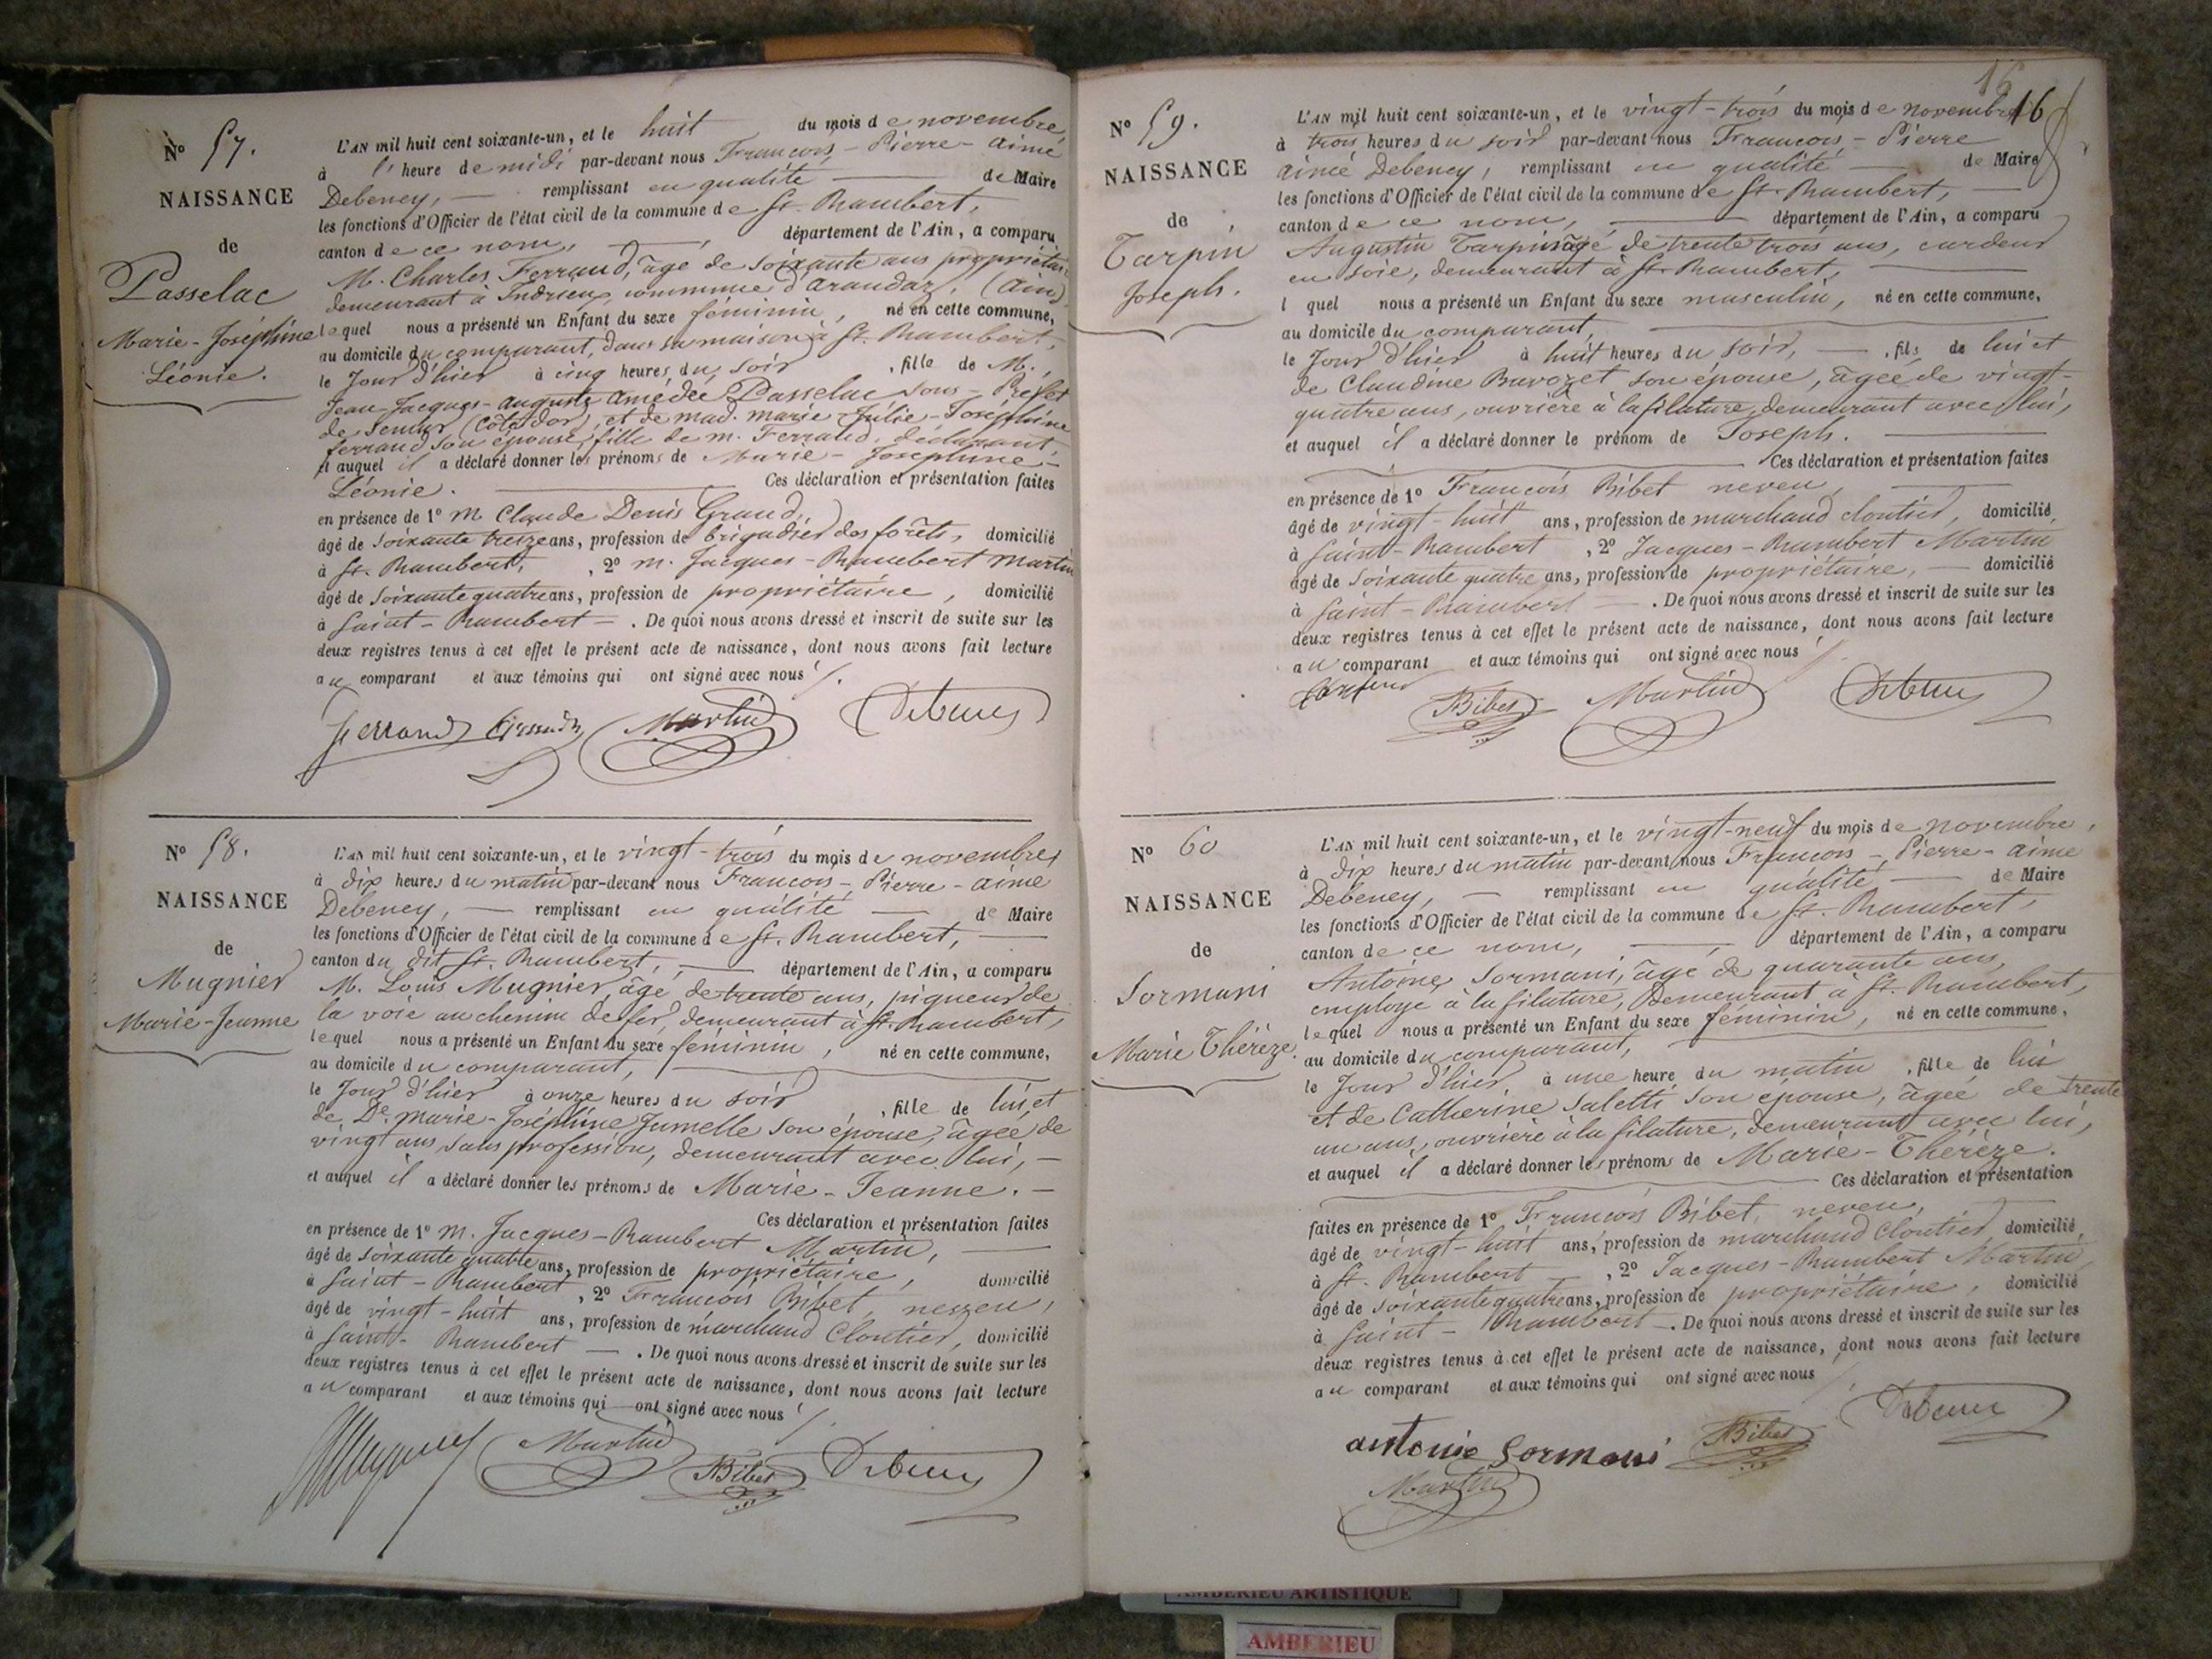 N° 57.
NAISSANCE
de
Passelac
Marie-Joséphine
Léonie.
L'AN mil huit cent soixante-un, et le huit du mois de novembre,
à l'heure de midi par-devant nous François-Pierre-aimé
Debeney, remplissant en qualité de Maire
les fonctions d'Officier de l'état civil de la commune de St. Rambert,
canton de ce nom, département de l'Ain, a comparu
M. Charles Ferrand, âgé de soixante ans propriétaire
demeurant à Indrieux, commune d'arandaz, (Ain)
lequel nous a présenté un Enfant du sexe féminin, né en cette commune,
au domicile du comparant, dans sa maison à St. Rambert,
le Jour d'hier à cinq heures du soir, fille de M.
Jean-Jacques-auguste amédée Passelac Sous-Préfet
de Semur (Côte d'or), et de mad. marie Julie-Joséphine
ferrand son épouse, fille de m. Ferrand, déclarant,
et auquel il a déclaré donner les prénoms de Marie-Joséphine-
Léonie. Ces déclaration et présentation faites
en présence de 1° M Claude Denis Giraud,
âgé de soixante treize ans, profession de brigadier des forêts, domicilié
à St. Rambert, 2° m. Jacques-Rambert Martin
âgé de soixante quatre ans, profession de propriétaire, domicilié
à Saint-Rambert. De quoi nous avons dressé et inscrit de suite sur les
deux registres tenus à cet effet le présent acte de naissance, dont nous avons fait lecture
au comparant et aux témoins qui ont signé avec nous
ferrand Martin Debeney
N° 58.
NAISSANCE
de
Mugnier
Marie-Jeanne
L'AN mil huit cent soixante-un, et le vingt-trois du mois de novembre,
à dix heures du matin par-devant nous François-Pierre-aimé
Debeney, remplissant en qualité de Maire
les fonctions d'Officier de l'état civil de la commune de St. Rambert,
canton du dit St. Rambert, département de l'Ain, a comparu
M. Louis Mugnier, âgé de trente ans, piqueur de
la voie au chemin de fer, demeurant à St. Rambert,
lequel nous a présenté un Enfant du sexe féminin, né en cette commune,
au domicile du comparant,
le Jour d'hier à onze heures du soir, fille de lui et
de De. marie-Joséphine Jumelle son épouse, âgée de
vingt ans sans profession, demeurant avec lui,
et auquel il a déclaré donner les prénoms de Marie-Jeanne.
Ces déclaration et présentation faites
en présence de 1° M. Jacques-Rambert Martin,
âgé de soixante quatre ans, profession de propriétaire, domicilié
à Saint-Rambert, 2° François Bibet, neveu,
âgé de vingt-huit ans, profession de marchand Cloutier, domicilié
à Saint-Rambert. De quoi nous avons dressé et inscrit de suite sur les
deux registres tenus à cet effet le présent acte de naissance, dont nous avons fait lecture
au comparant et aux témoins qui ont signé avec nous
Martin Bibet Debeney
16
16
N° 59.
NAISSANCE
de
Tarpin
Joseph.
L'AN mil huit cent soixante-un, et le vingt-trois du mois de novembre
à trois heures du soir par-devant nous François-Pierre
aimé Debeney, remplissant en qualité de Maire
les fonctions d'Officier de l'état civil de la commune de St. Rambert,
canton de ce nom, département de l'Ain, a comparu
Augustin Tarpin âgé de trente trois ans, cardeur
en soie, demeurant à St. Rambert,
l quel nous a présenté un Enfant du sexe masculin, né en cette commune,
au domicile du comparant,
le Jour d'hier à huit heures du soir, fils de lui et
de Claudine Bavozet son épouse, âgée de vingt-
quatre ans, ouvrière à la filature, demeurant avec lui,
et auquel il a déclaré donner le prénom de Joseph.
Ces déclaration et présentation faites
en présence de 1° François Bibet neveu,
âgé de vingt-huit ans, profession de marchand cloutier, domicilié
à Saint-Rambert, 2° Jacques-Rambert Martin
âgé de soixante quatre ans, profession de propriétaire, domicilié
à Saint-Rambert. De quoi nous avons dressé et inscrit de suite sur les
deux registres tenus à cet effet le présent acte de naissance, dont nous avons fait lecture
au comparant et aux témoins qui ont signé avec nous
Bibet Martin Debeney
N° 60
NAISSANCE
de
Sormani
Marie Thérèze.
L'AN mil huit cent soixante-un, et le vingt-neuf du mois de novembre,
à dix heures du matin par-devant nous François-Pierre-aimé
Debeney, remplissant en qualité de Maire
les fonctions d'Officier de l'état civil de la commune de St. Rambert,
canton de ce nom, département de l'Ain, a comparu
Antoine Sormani, âgé de quarante ans,
employé à la filature, Demeurant à St. Rambert,
lequel nous a présenté un Enfant du sexe féminin, né en cette commune,
au domicile du comparant,
le Jour d'hier, à une heure du matin, fille de lui
et de Catherine Saletti son épouse, âgée de trente
un ans, ouvrière à la filature, demeurant avec lui,
et auquel il a déclaré donner les prénoms de Marie-Thérèze.
Ces déclaration et présentation
faites en présence de 1° François Bibet, neveu,
âgé de vingt-huit ans, profession de marchand Cloutier, domicilié
à St. Rambert, 2° Jacques-Rambert Martin,
âgé de soixante quatre ans, profession de propriétaire, domicilié
à Saint-Rambert. De quoi nous avons dressé et inscrit de suite sur les
deux registres tenus à cet effet le présent acte de naissance, dont nous avons fait lecture
au comparant et aux témoins qui ont signé avec nous
antonio Sormani Bibet Debeney
Martin
AMBERIEU ARTISTIQUE
AMBERIEU